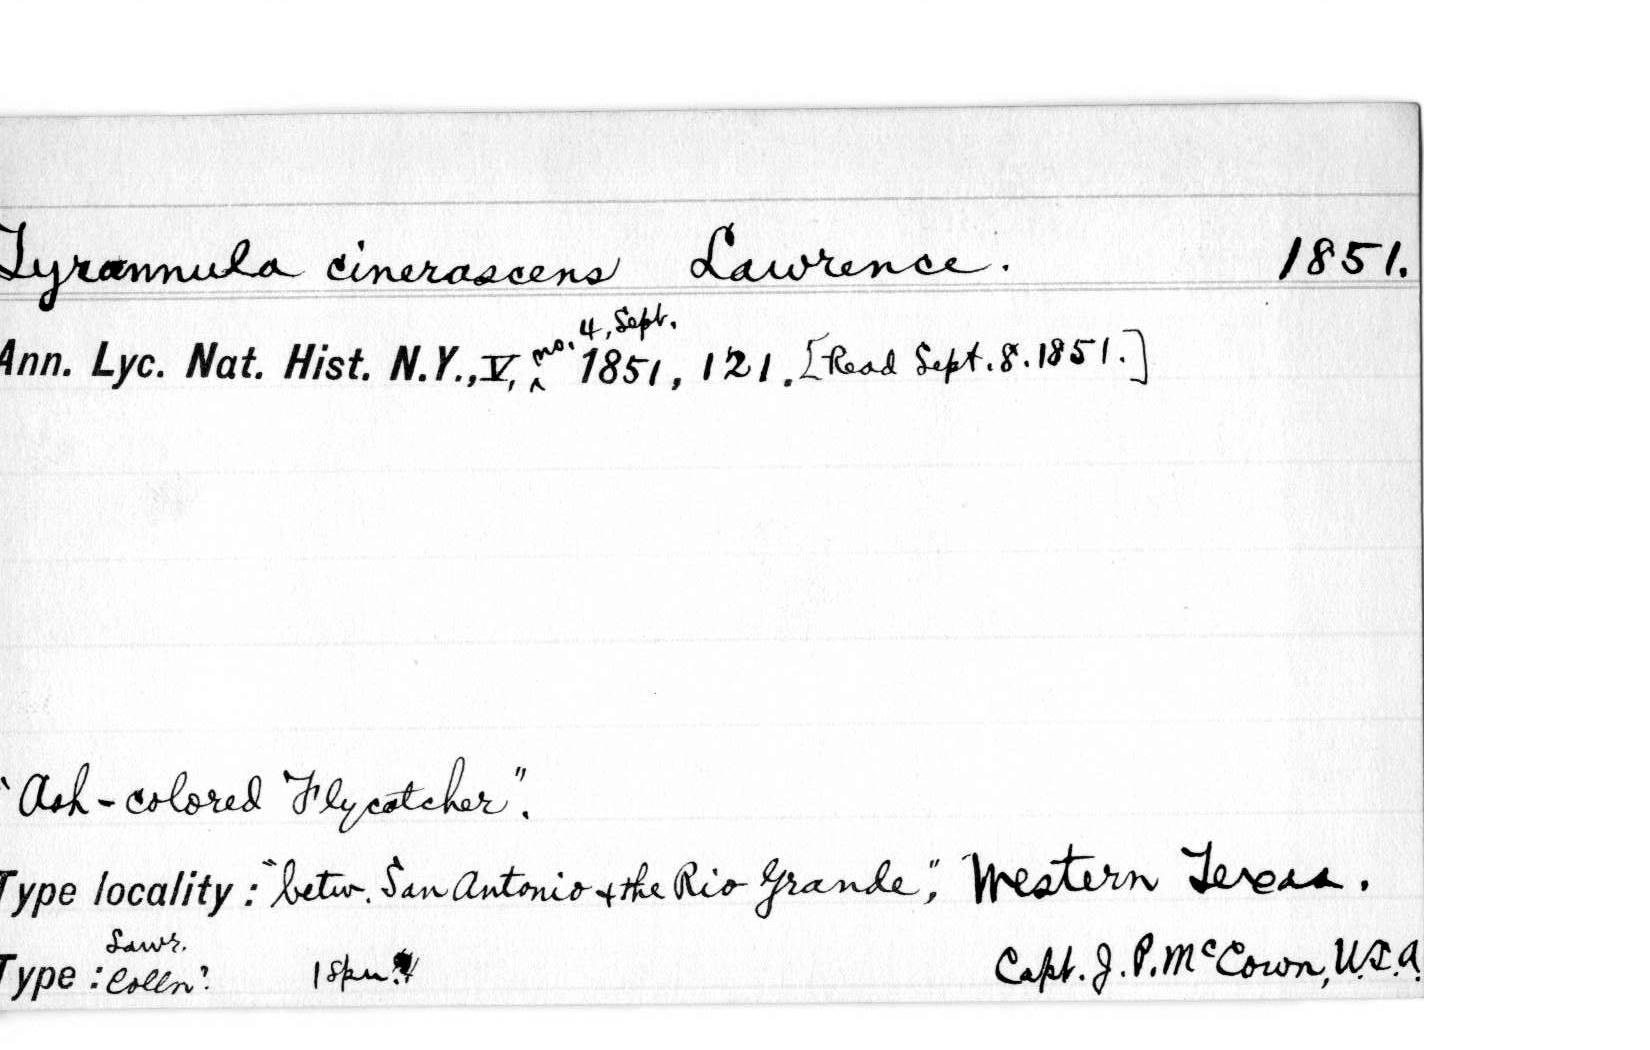 Tyrannula cinerascens Lawrence. 1851.
Ann. Lyc. Nat. Hist. N.Y., V, no. 4, Sept. 1851, 121. [Read Sept. 8. 1851.]
"Ash-colored Flycatcher".
Type locality: "betw. San Antonio & the Rio Grande", Western Texas.
Type: Lawr. Colln? 1 Capt. J. P. McCown, U.S.A.